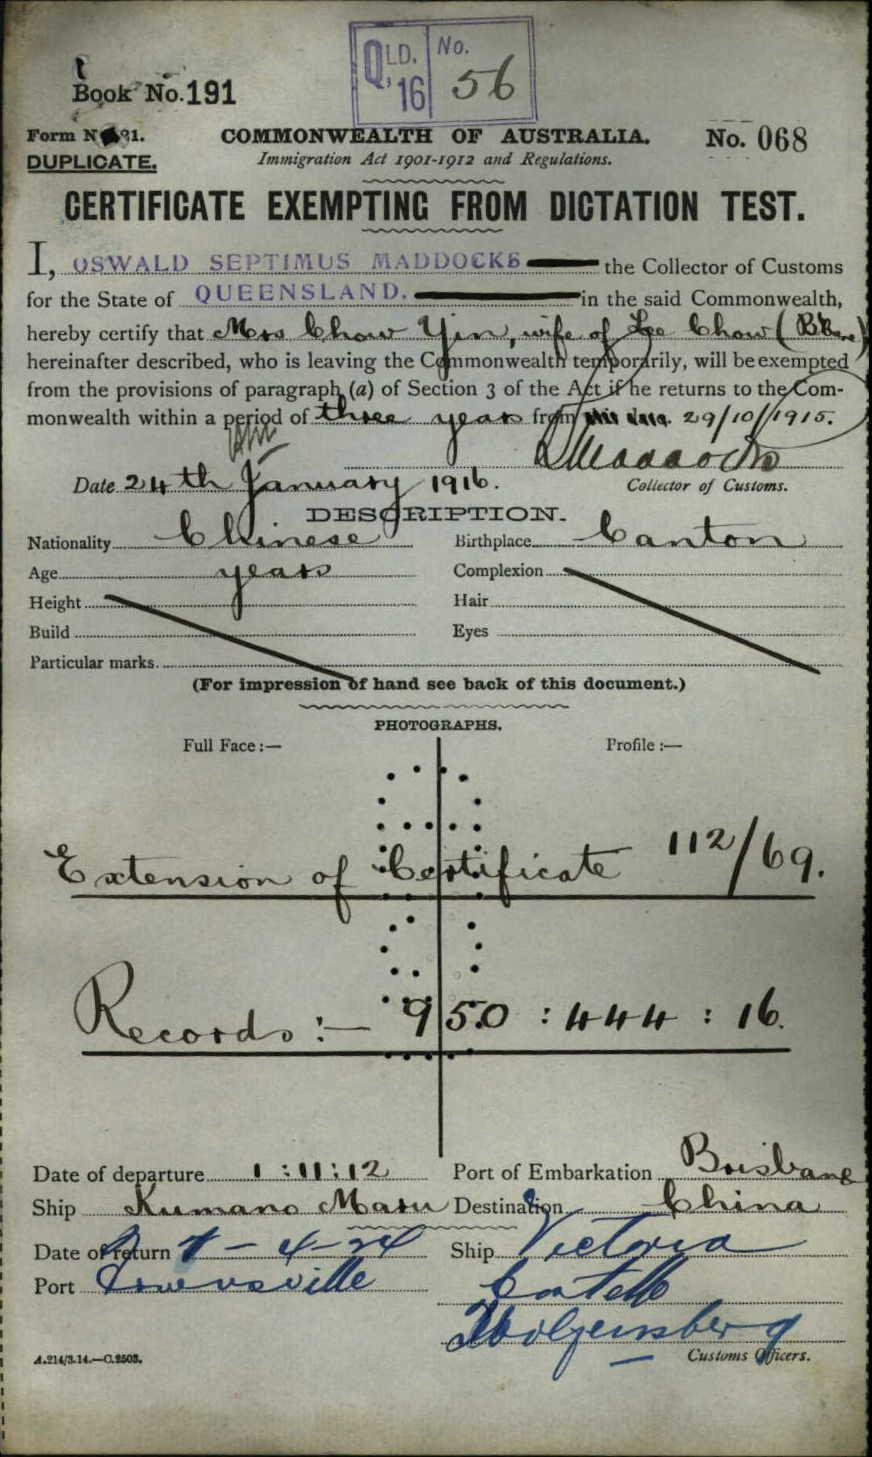 QLD. No.
'16 56
Book No. 191
Form No 21. COMMONWEALTH OF AUSTRALIA. No. 068
DUPLICATE. Immigration Act 1901-1912 and Regulations.
CERTIFICATE EXEMPTING FROM DICTATION TEST.
I, OSWALD SEPTIMUS MADDOCKS the Collector of Customs
for the State of QUEENSLAND. in the said Commonwealth,
hereby certify that Mrs Chow Yin, wife of Lee Chow
hereinafter described, who is leaving the Commonwealth temporarily, will be exempted
from the provisions of paragraph (a) of Section 3 of the Act if he returns to the Com-
monwealth within a period of three years from this date. 29/10/1915.
OSMaddocks
Date 24th January 1916. Collector of Customs.
DESCRIPTION.
Nationality Chinese Birthplace Canton
Age years Complexion
Height Hair
Build Eyes
Particular marks.
(For impression of hand see back of this document.)
PHOTOGRAPHS.
Full Face :— Profile :—
Extension of Certificate 112/69.
Records :— 950 : 444 : 16.
Date of departure 1 : 11 : 12 Port of Embarkation Brisbane
Ship Kumano Maru Destination China
Date of return - 4 - 24 Ship Victoria
Port Townsville
Customs Officers.
A.214/3.14.—C.2503.